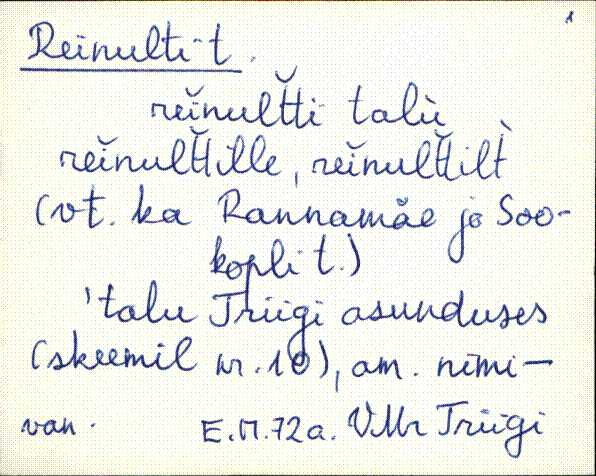 1
Reinulti t.
rĕinult̆ti talù
rĕinult̆tille, rĕinult̆tilt̀
(vt. ka Rannamäe ja Soo-
kopli t.)
'talu Triigi asunduses
(skeemil nr. 10), am. nimi —
van. E.M.72a. VMr Triigi